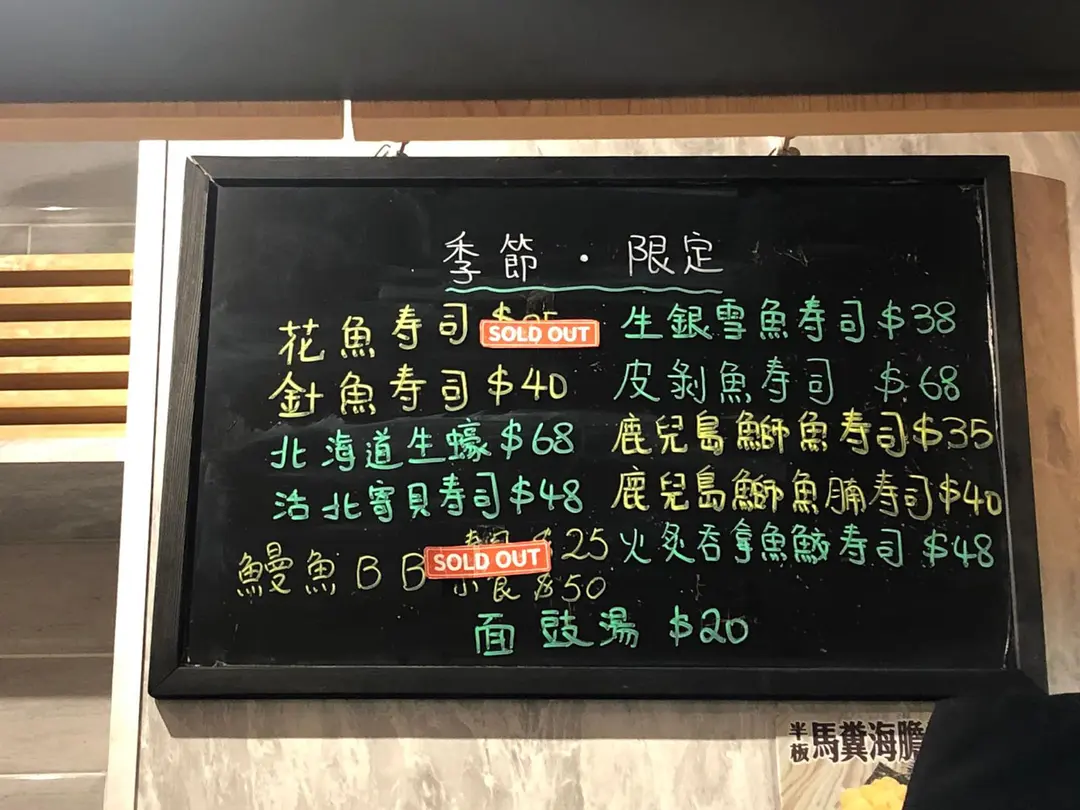 季節・限定
花魚寿司 $
SOLD OUT
針魚寿司 $40
北海道生蠔 $68
活北寄貝寿司 $48
鰻魚BB 寿司 $25
SOLD OUT
小食 $50
生銀雪魚寿司 $38
皮剝魚寿司 $68
鹿兒島鰤魚寿司 $35
鹿兒島鰤魚腩寿司 $40
火炙吞拿魚鮫寿司 $48
面豉湯 $20
半板
馬糞海膽